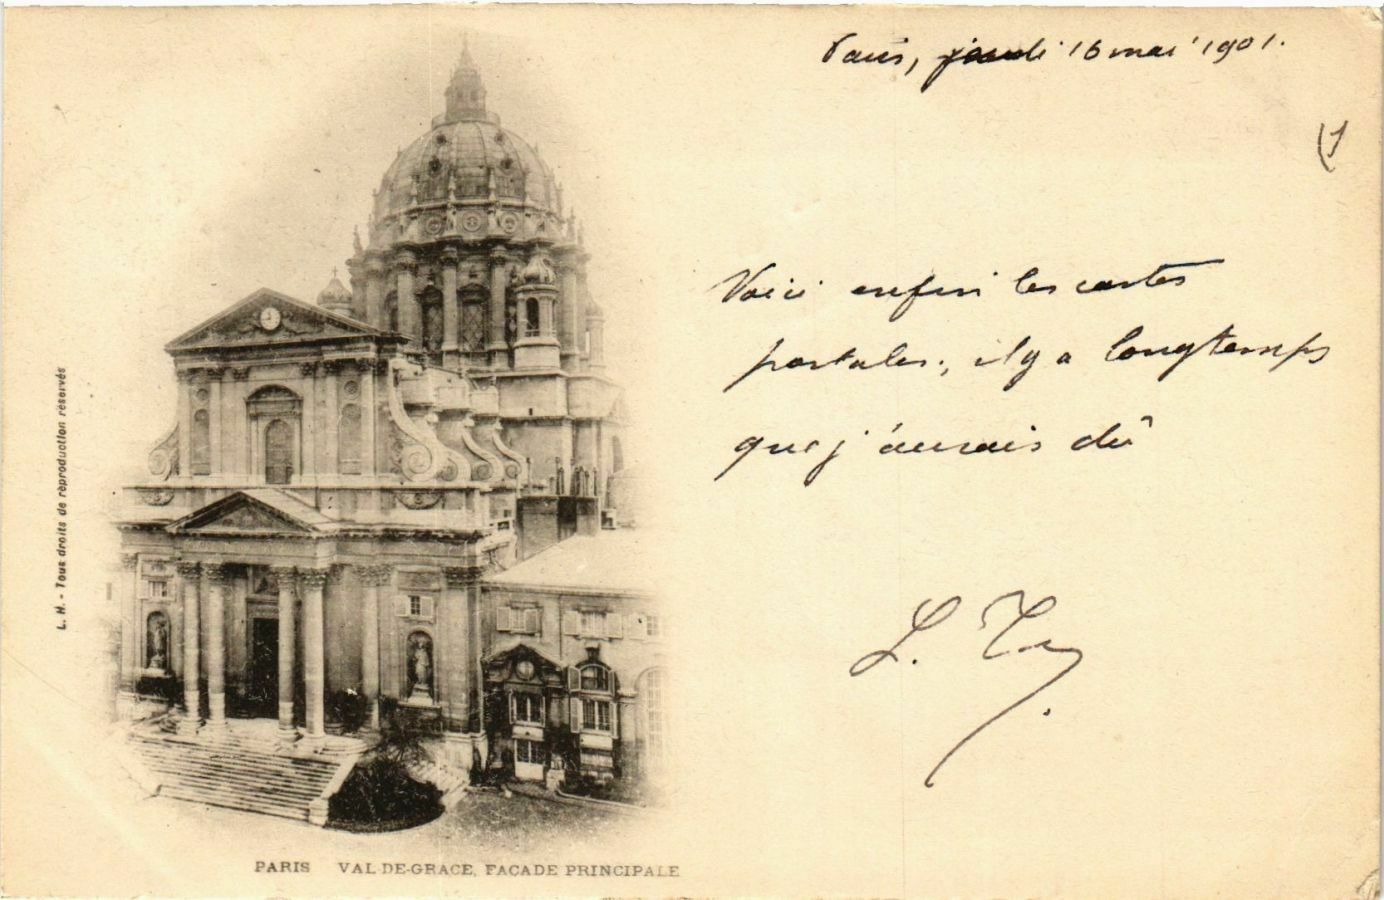 Paris, jeudi 16 mai 1901.
Voici enfin les cartes
postales; il y a longtemps
que j'aurais dû
L. T
L. H. - Tous droits de reproduction réservés
PARIS VAL-DE-GRACE, FAÇADE PRINCIPALE